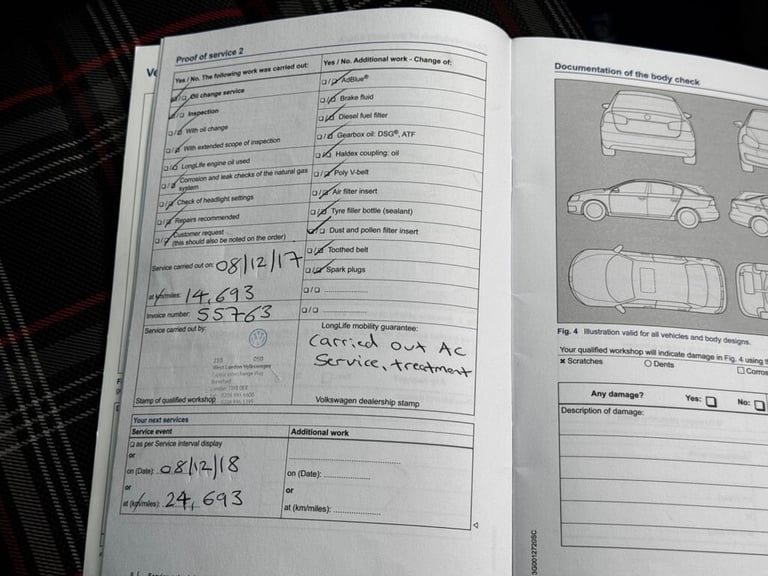 Proof of service 2
Yes / No. The following work was carried out:
Oil change service
Inspection
With oil change
With extended scope of inspection
LongLife engine oil used
Corrosion and leak checks of the natural gas
system
Check of headlight settings
Repairs recommended
Customer request
(this should also be noted on the order)
Service carried out on: 08/12/17
at km/miles: 14,693
Invoice number: 55763
Service carried out by:
West London Volkswagen
Brentford
Stamp of qualified workshop
Yes / No. Additional work - Change of:
AdBlue®
Brake fluid
Diesel fuel filter
Gearbox oil: DSG®, ATF
Haldex coupling: oil
Poly V-belt
Air filter insert
Tyre filler bottle (sealant)
Dust and pollen filter insert
Toothed belt
Spark plugs
LongLife mobility guarantee:
Carried out AC
Service, treatment
Volkswagen dealership stamp
Your next services
Service event
as per Service interval display
or
on (Date): 08/12/18
or
at (km/miles): 24,693
Additional work
on (Date):
or
at (km/miles):
Documentation of the body check
Fig. 4 Illustration valid for all vehicles and body designs.
Your qualified workshop will indicate damage in Fig. 4 using
Scratches
Dents
Corros
Any damage? Yes: No:
Description of damage:
3G0012720SC